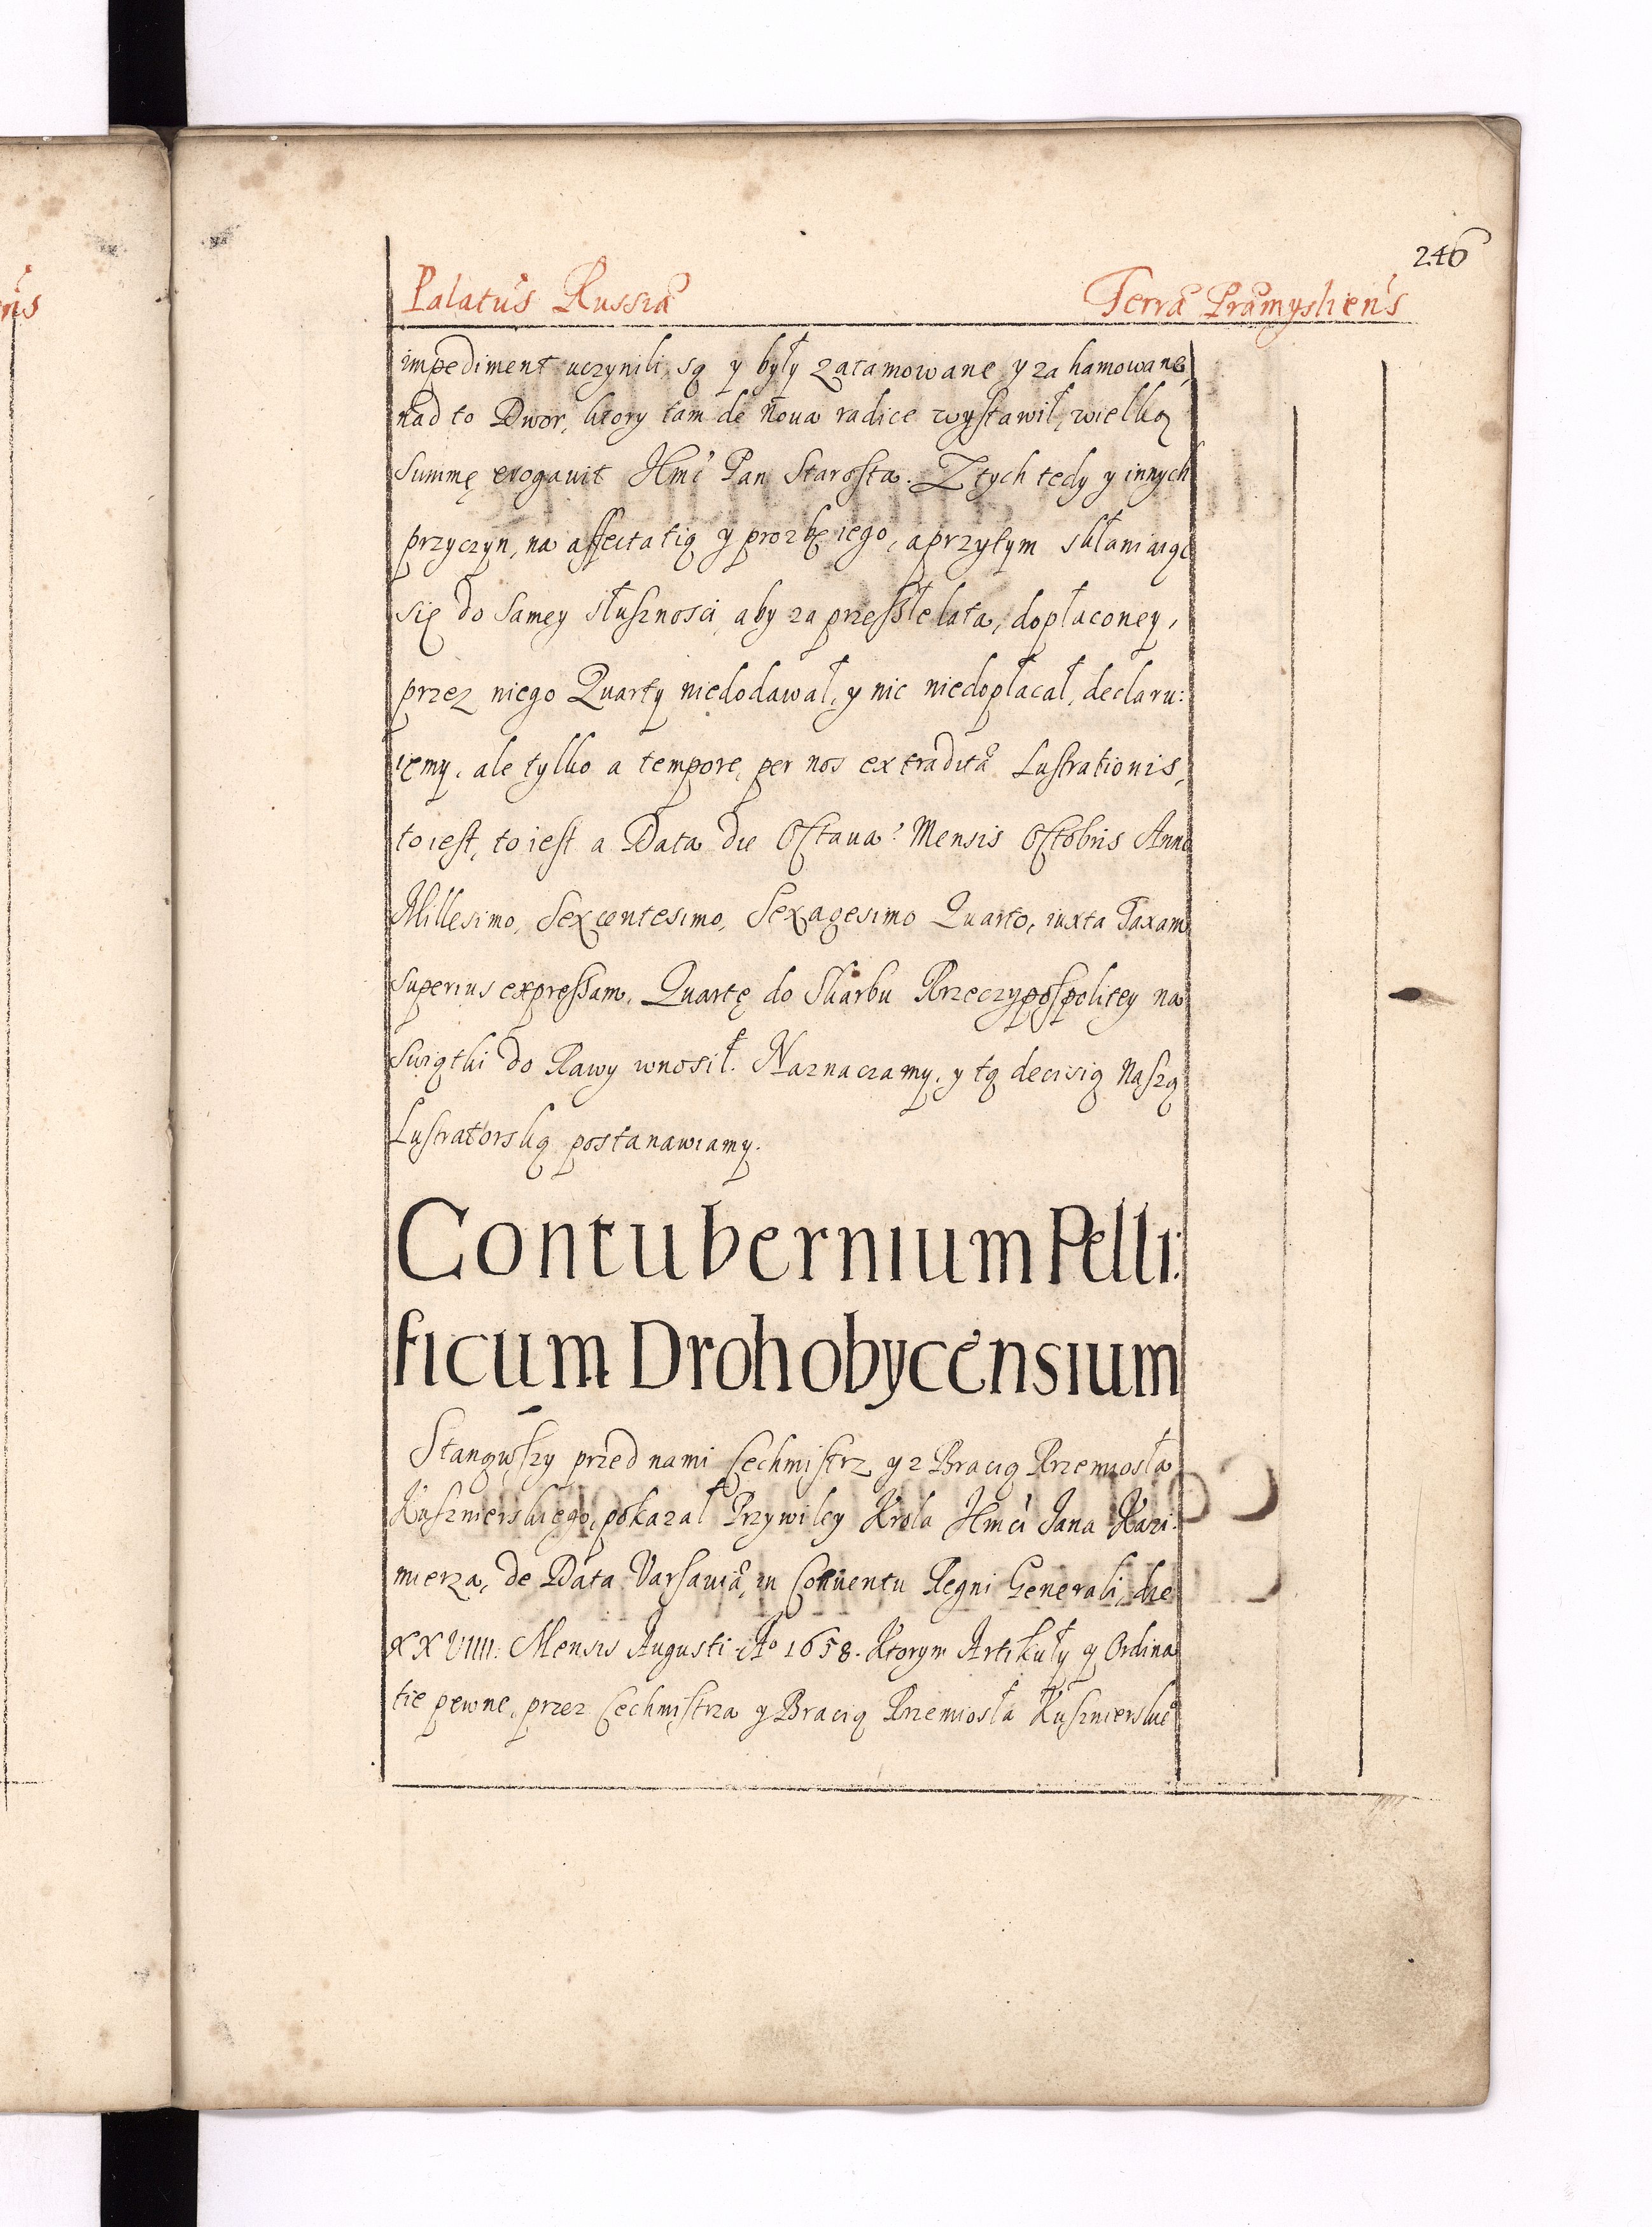 246
Palatus Russiæ Terræ Præmysliens
impediment uczynili, są y były zatamowane y zahamowane,
nad to Dwor, ktory tam de nova radice wystawił, wielką
Summę erogavit Jmć Pan Starosta. Z tych tedy y innych
przyczyn, na affectatią y prozbę iego, a przytym skłaniaiąc
się do samey słuszności, aby za przeszłe lata, dopłaconey,
przez niego Quarty niedodawał, y nic niedopłacał, declaru:
iemy, ale tylko a tempore, per nos extraditæ Lustrationis,
to iest, to iest a Data die Octava Mensis Octobris Anno
Millesimo, Sexcentesimo, Sexagesimo Quarto, iuxta Taxam
superius expressam, Quartę do Skarbu Rzeczypospolitey na
Swiątki do Rawy wnosił. Naznaczamy, y tą decisią Naszą
Lustratorską postanawiamy.
Contubernium Pelli:
ficum Drohobycensium
Stanąwszy przed nami Cechmistrz y z Bracią Rzemiosła
Kusznierskiego, pokazał Przywiley Krola Jmći Jana Kazi:
mierza, de Data Varsaviæ, in Conventu Regni Generali, die
XXVIIII: Mensis Augusti Aº 1658. Ktorym Artikuły y Ordina
tie pewne, przez Cechmistrza y Bracią Rzemiosła Kusznierskieº